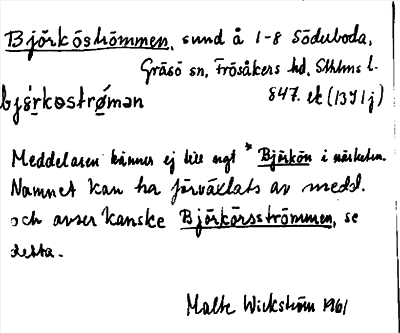 Björköströmmen, sund å 1-8 Söduboda,
Gräsö sn, Frösåkers hd, Sthlms l.
bjǿrkostrǿmən 847. ek (13I1j)
Meddelaren känner ej till ngt * Björkön i närheten.
Namnet kan ha förväxlats av medd.
och avser kanske Björkörsströmmen, se
detta.
Malte Wickström 1961